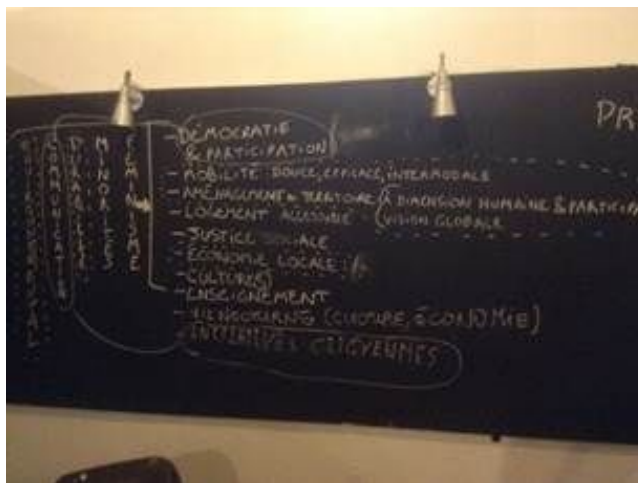 COMMUNICATION
DURABILITÉ
MINORITÉS
FÉMINISME
- DÉMOCRATIE
& PARTICIPATION
- MOBILITÉ DOUCE, EFFICACE, INTERMODALE
- AMÉNAGEMENT TERRITOIRE (À DIMENSION HUMAINE & PARTICIPA
- LOGEMENT ACCESSIBLE VISION GLOBALE
- JUSTICE SOCIALE
- ÉCONOMIE LOCALE :
- CULTURE(S)
- ENSEIGNEMENT
(CULTURE, ÉCONOMIE)
- INITIATIVES CITOYENNES
DR